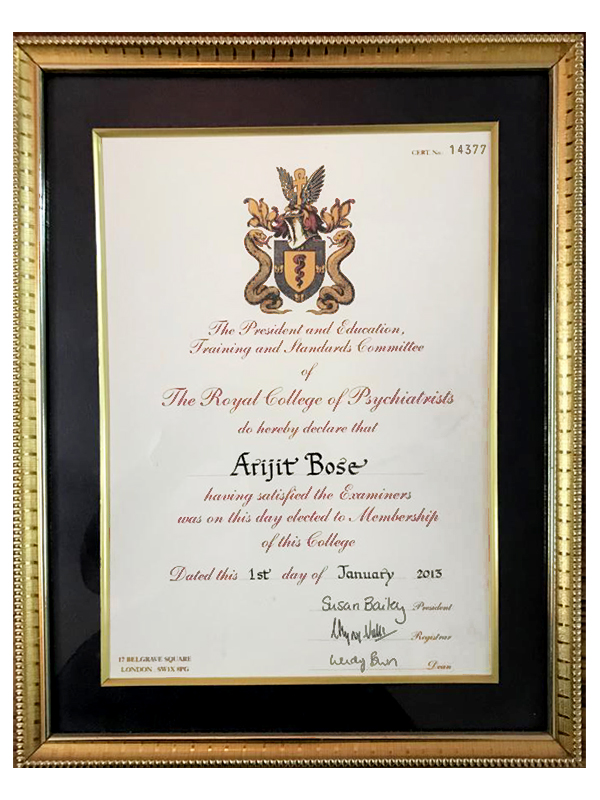 CERT. No. 14377
The President and Education,
Training and Standards Committee
of
The Royal College of Psychiatrists
do hereby declare that
Arijit Bose
having satisfied the Examiners
was on this day elected to Membership
of this College
Dated this 1st day of January 2013
Susan Bailey President
Registrar
Dean
17 BELGRAVE SQUARE
LONDON SW1X 8PG